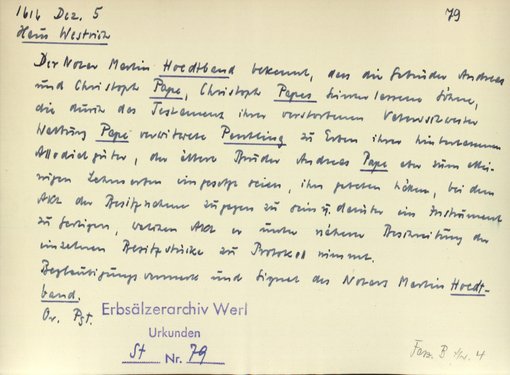 1616 Dez. 5 79
Haus Westrich
Der Notar Martin Hoedtband bekennt, dass die Gebrüder Andreas
und Christoph Pape, Christoph Papes hinterlassene Söhne,
die durch das Testament ihrer verstorbenen Vatersschwester
Walburg Pape verwitwete Pentling zu Erben ihrer hinterlassenen
Allodialgüter, der ältere Bruder Andreas Pape aber zum allei-
nigen Lehnserben eingesetzt seien, ihn gebeten haben, bei dem
Akt der Besitznahme zugegen zu sein u. darüber ein Instrument
zu fertigen, welchen Akt er unter näherer Beschreibung der
einzelnen Besitzstücke zu Protokoll nimmt.
Beglaubigungsvermerk und Signet des Notars Martin Hoedt-
band.
Or. Pgt.
Erbsälzerarchiv Werl
Urkunden
St Nr. 79
Fasz. B Nr. 4